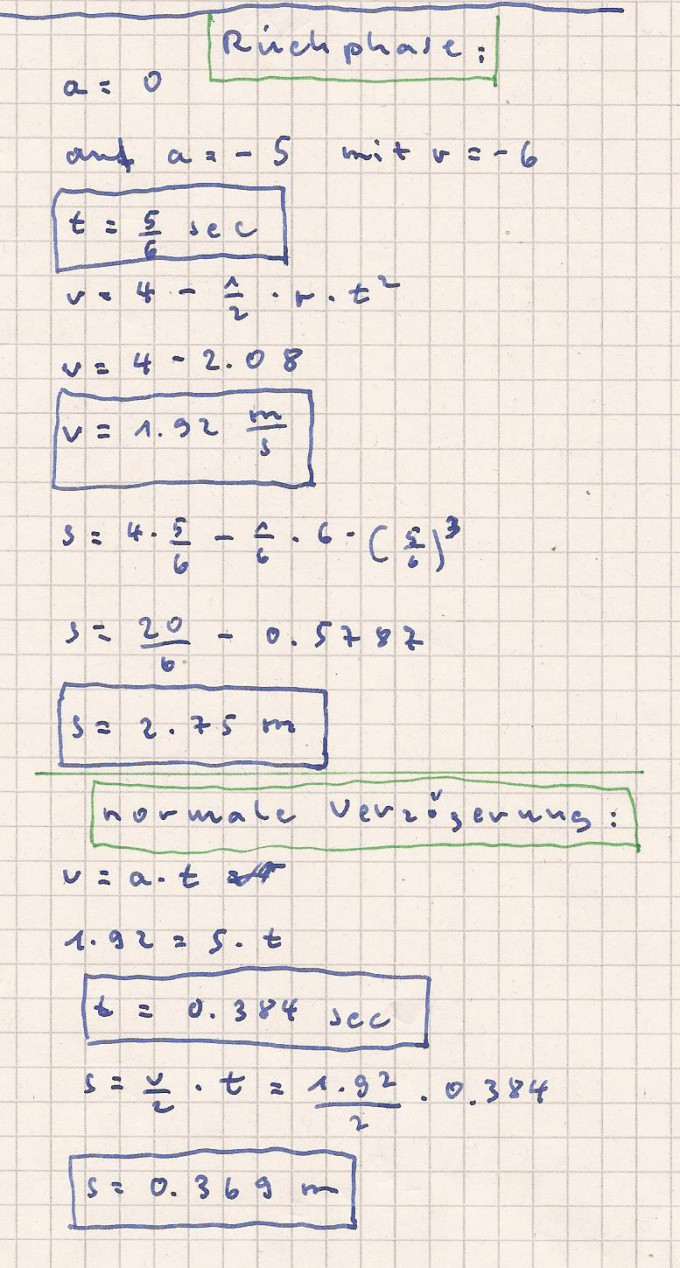 Ruckphase:
a = 0
auf a = - 5 mit r = - 6
t = 5/6 sec
v = 4 - 1/2 · r · t²
v = 4 - 2.08
v = 1.92 m/s
s = 4 · 5/6 - 1/6 · 6 · (5/6)³
s = 20/6 - 0.5787
s = 2.75 m
normale Verzögerung:
v = a · t
1.92 = 5 · t
t = 0.384 sec
s = v/2 · t = 1.92/2 · 0.384
s = 0.369 m